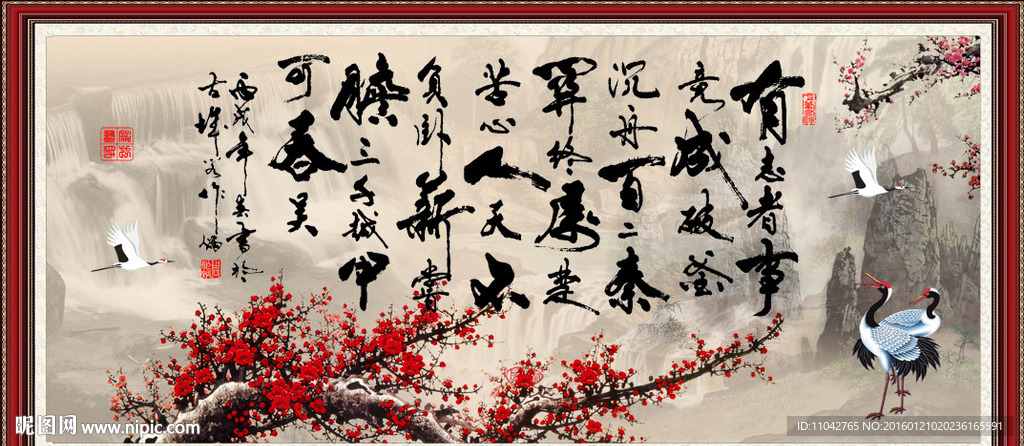 有志者事
竟成破釜
沉舟百二秦
關终属楚
苦心人天不
负卧薪嘗
膽三千越甲
可吞吴
丙戌年春書於
古城
昵图网 www.nipic.com
ID:11042765 NO:20160121020236165591